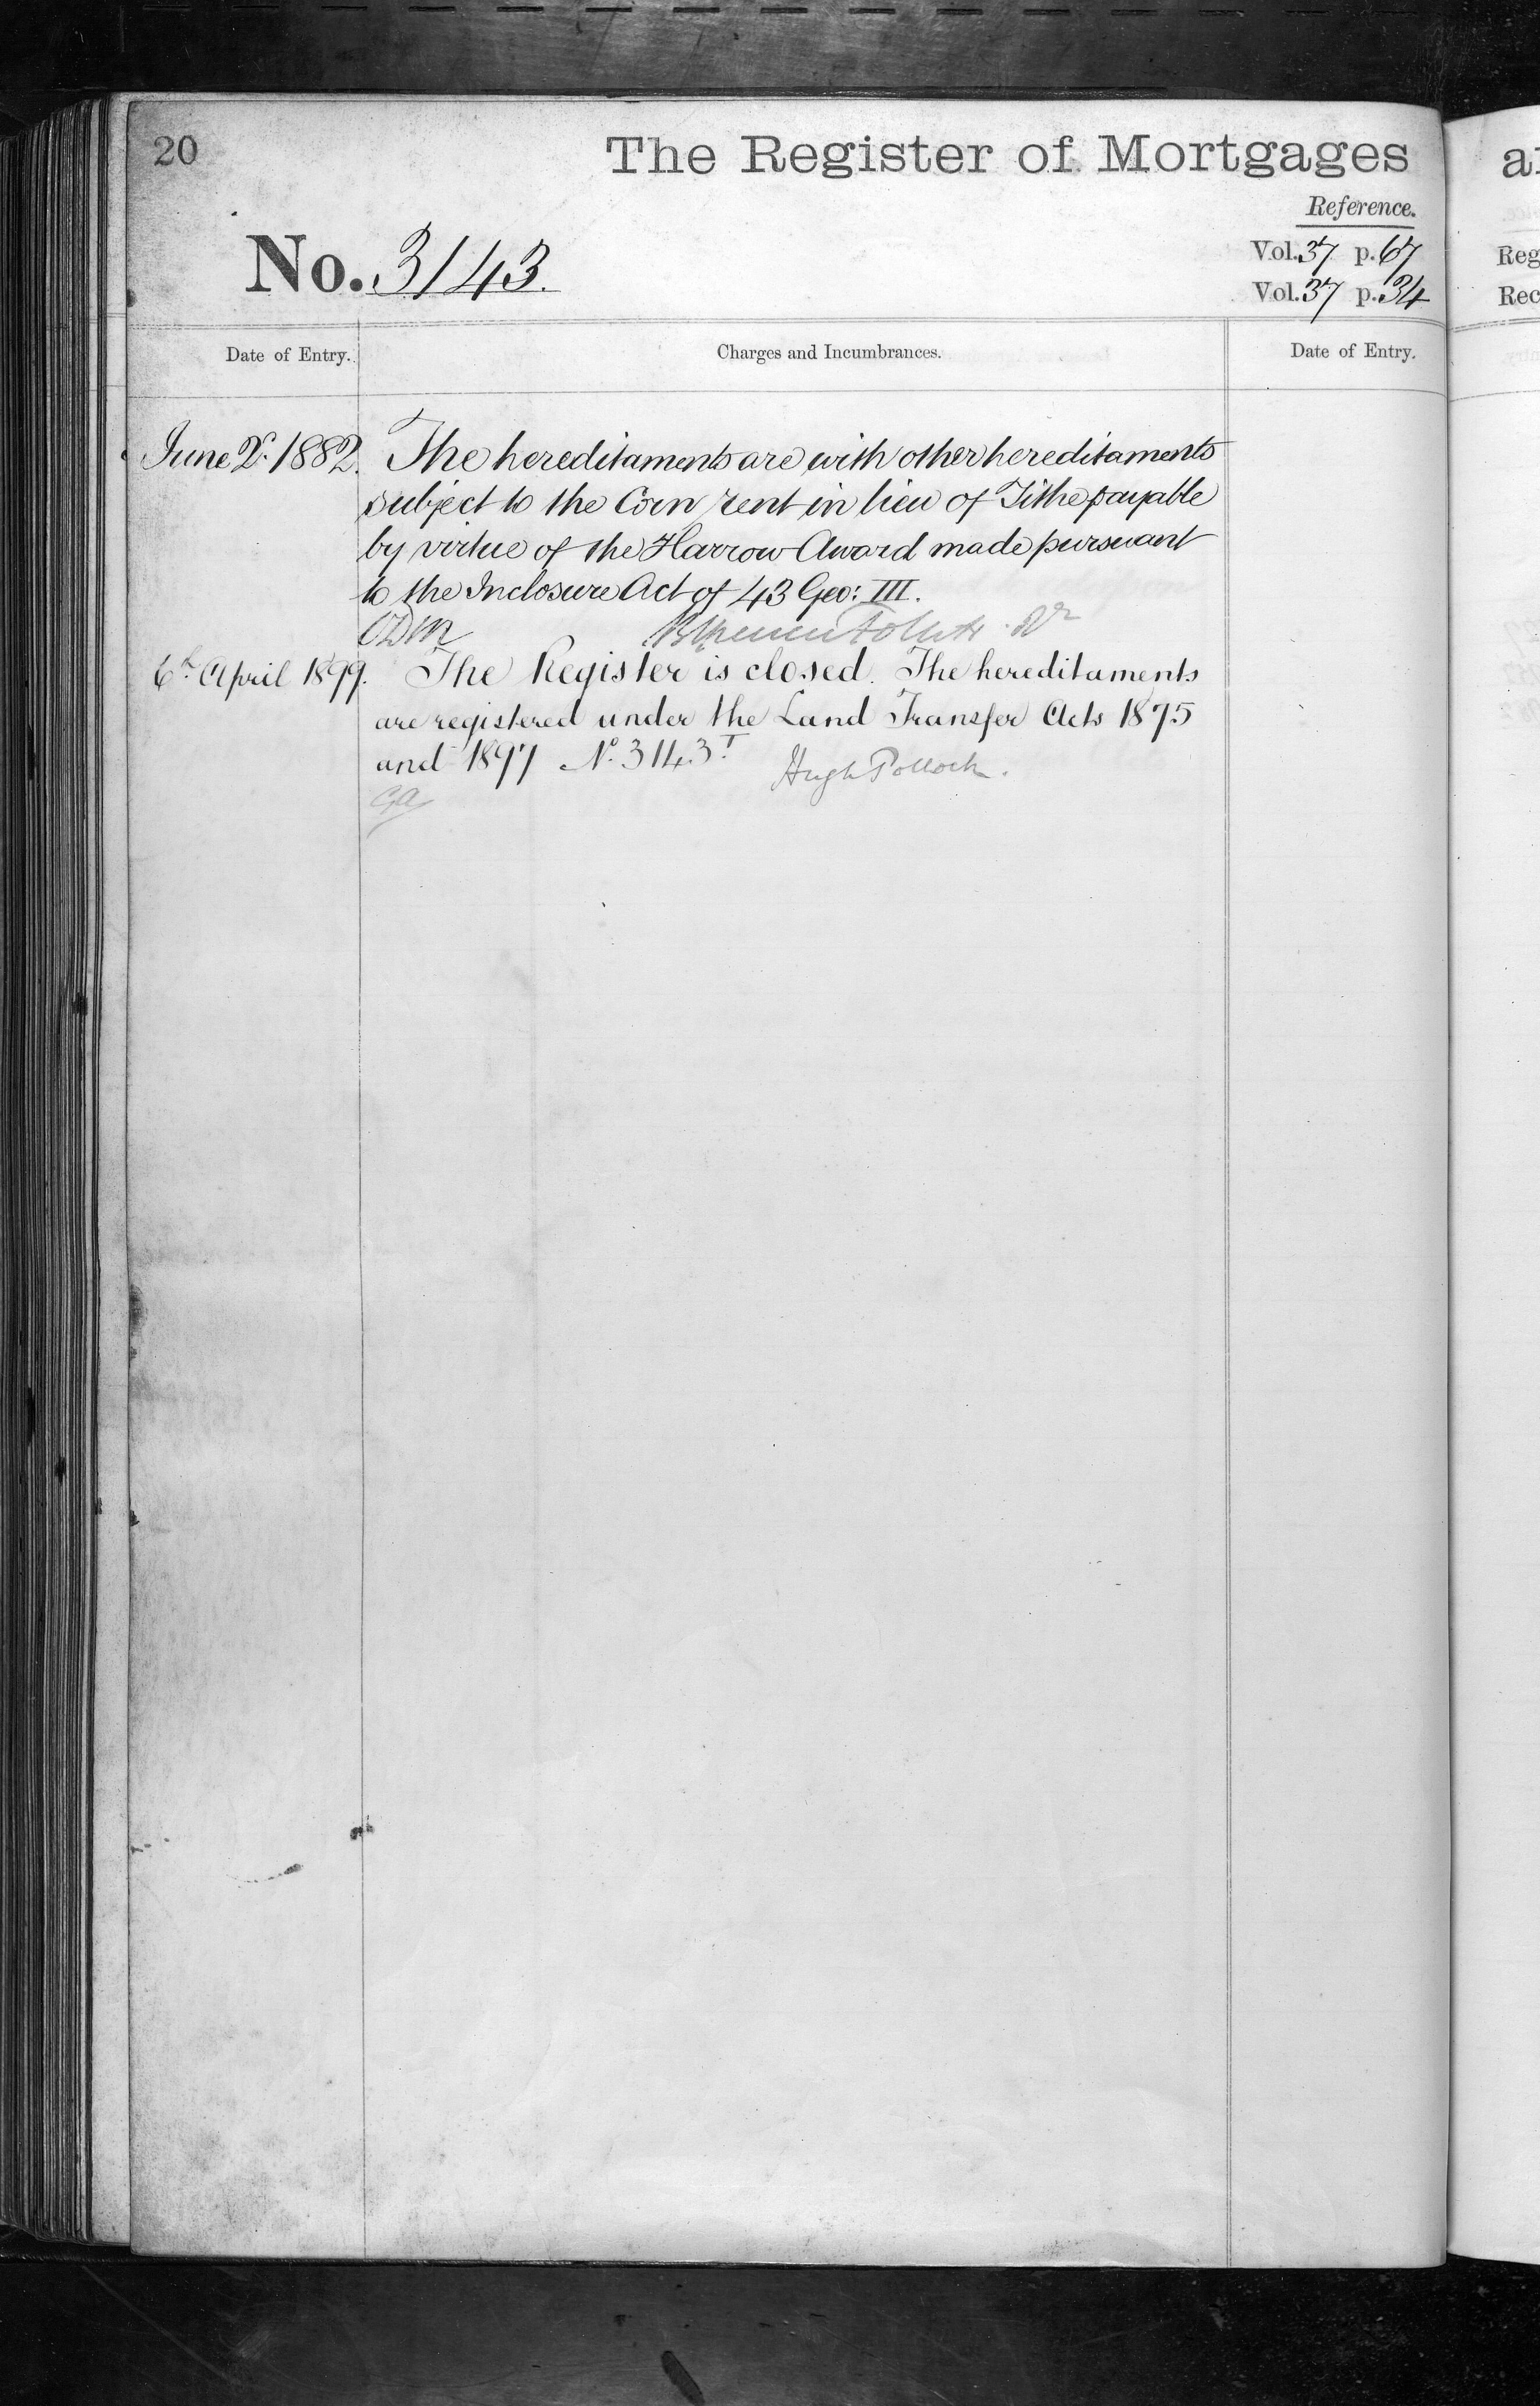 20
The Register of Mortgages
Reference.
No. 3143.
Vol. 37 p. 67
Vol. 37 p. 34
Date of Entry.
Charges and Incumbrances.
Date of Entry.
June 2d. 1882. The hereditaments are with other hereditaments
subject to the Corn rent in lieu of Tithe payable
by virtue of the Harrow Award made pursuant
to the Inclosure Act of 43 Geo: III.
6th April 1899. The Register is closed. The hereditaments
are registered under the Land Transfer Acts 1875
and 1897 No. 3143 I
Hugh Pollock.
Reg
Rec